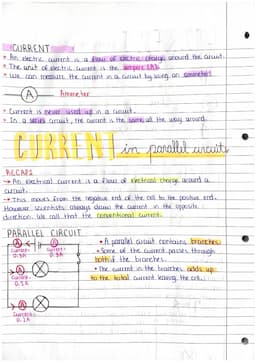 CURRENT
• An electric current is a flow of electric charge around the circuit.
• The unit of electric current is the ampere (A).
• We can measure the current in a circuit by using an ammeter.
A
Ammeter
• Current is never used up in a circuit.
• In a series circuit, the current is the same all the way around.
CURRENT in parallel circuits
RECAP!
→ An electrical current is a flow of electrical charge around a
circuit.
→ This moves from the negative end of the cell to the positive end.
However scientists always draw the current in the opposite
direction. We call that the conventional current.
PARALLEL CIRCUIT
A
A
Current:
0.3A
Current:
0.3A
A
Current:
A
Current:
0.2A
• A parallel circuit contains branches.
• Some of the current passes through
both of the branches.
• The current in the branches adds up
to the total current leaving the cell.